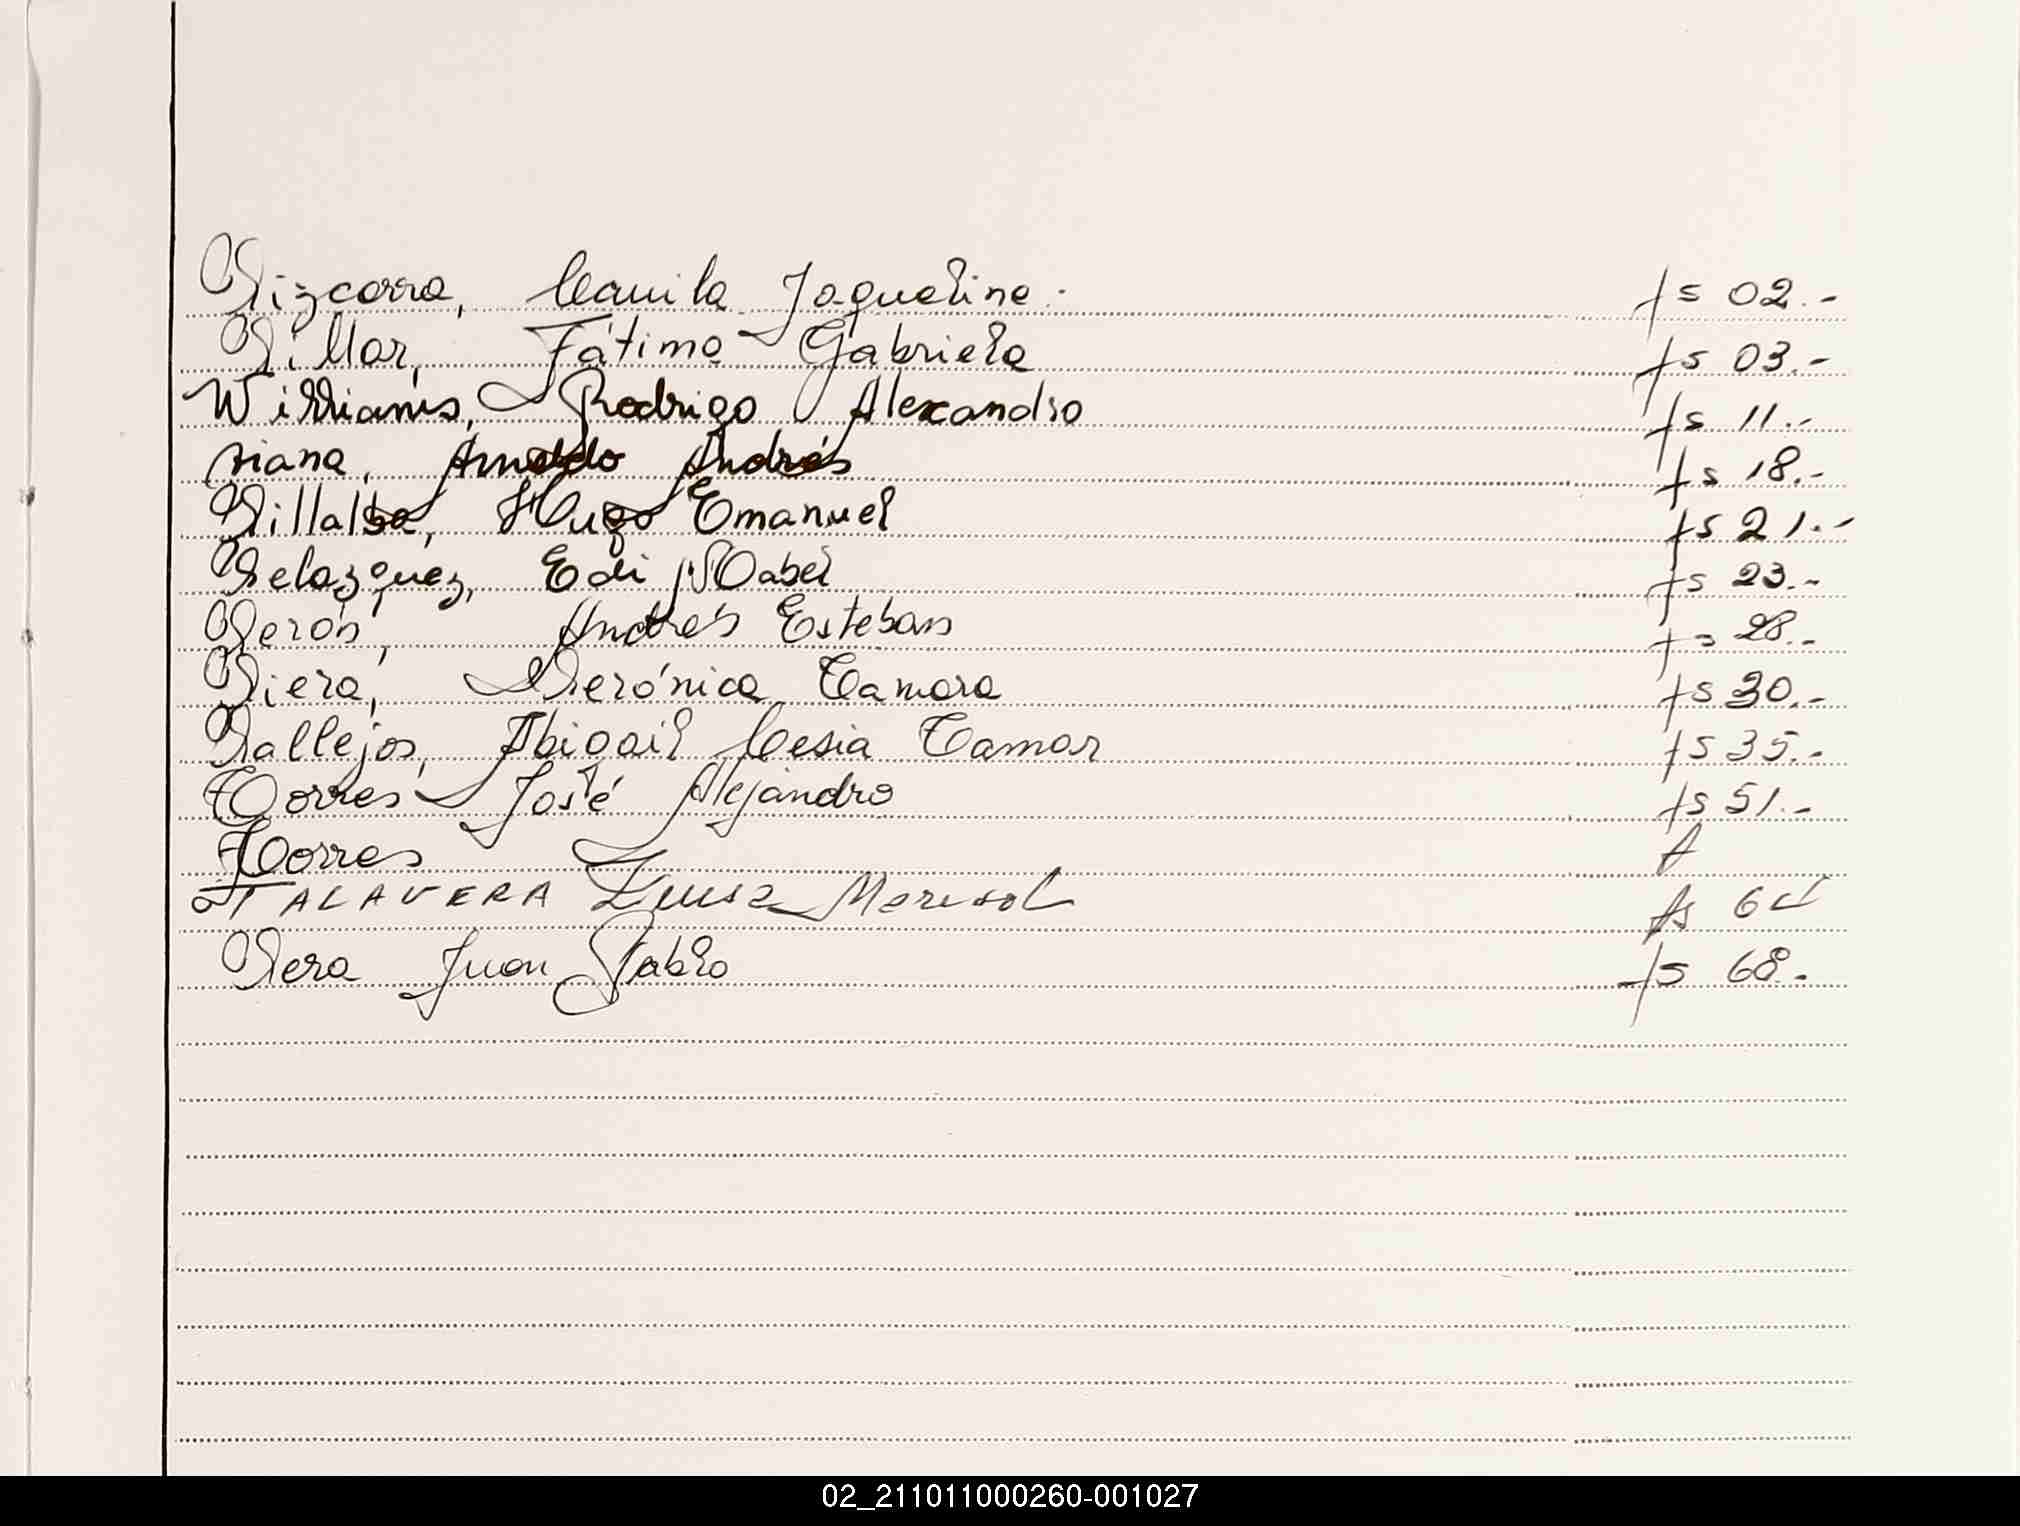 Vizcarra, Camila Jaqueline. fs 02.-
Villar, Fátima Gabriela fs 03.-
Willians, Rodrigo Alexandro fs 11.-
Viana, Arnaldo Andrés fs 18.-
Villalba, Hugo Emanuel fs 21.-
Velazquez, Edi Mabel fs 23.-
Verón, Andrés Esteban fs 28.-
Viera, Verónica Tamara fs 30.-
Vallejos, Abigail Cesia Tamar fs 35.-
Torres José Alejandro fs 51.-
Torres f
TALAVERA Luisa Marisol fs
Vera Juan Pablo fs 68.-
02_211011000260-001027